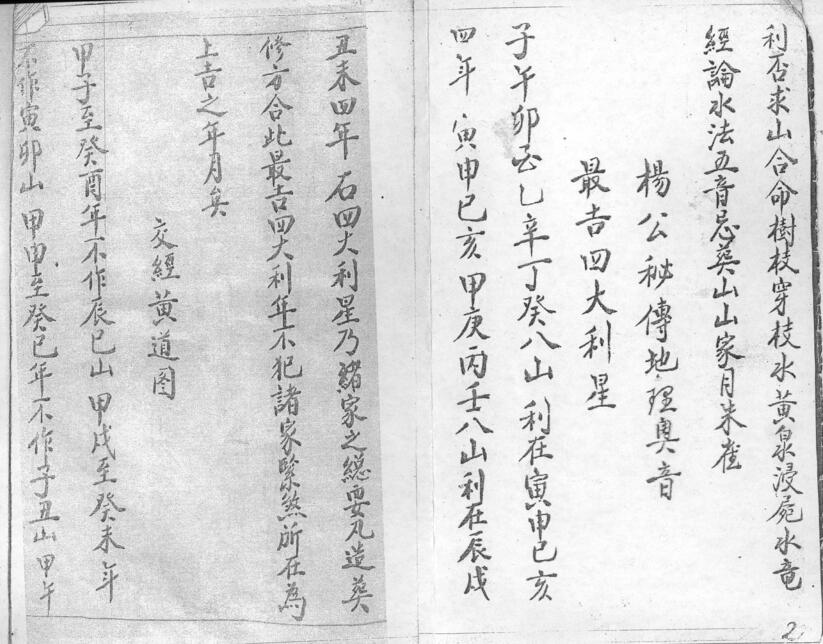 利否求山合命樹枝穿枝水黃泉浸屍水竜
經論水法五音忌葬山山家月朱雀
楊公秘傳地理奧音
最吉四大利星
子午卯酉乙辛丁癸八山利在寅申巳亥
四年寅申巳亥甲庚丙壬八山利在辰戌
2
丑未四年 右四大利星乃諸家之總要凡造葬
修方合此最吉四大利年不犯諸家緊煞所在為
上吉之年月矣
交經黃道图
甲子至癸酉年不作辰巳山 甲戌至癸未年
不作寅卯山 甲申至癸巳年不作子丑山 甲午